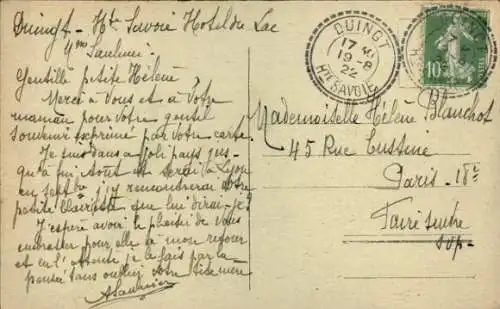 Duingt - Hte Savoie Hotel du Lac
Gentille petite Hélène
Merci à Vous et à Votre
maman pour votre gentil
souvenir exprimé par votre carte.
Je suis dans un joli pays jus-
qu'à fin Août et serai à Lyon
en Septbre j'y remontrerai votre
petite Clairette que lui dirai-je?
J'espère avoir le plaisir de vous
embrasser pour elle à mon retour
et en l'attente je le fais par la
pensée sans oublier votre
ASaulnier
DUINGT
17
19-8
22
Hte SAVOIE
10
Mademoiselle Hélène Blanchot
45 Rue Custine
Paris 18e
Faire suivre
svp